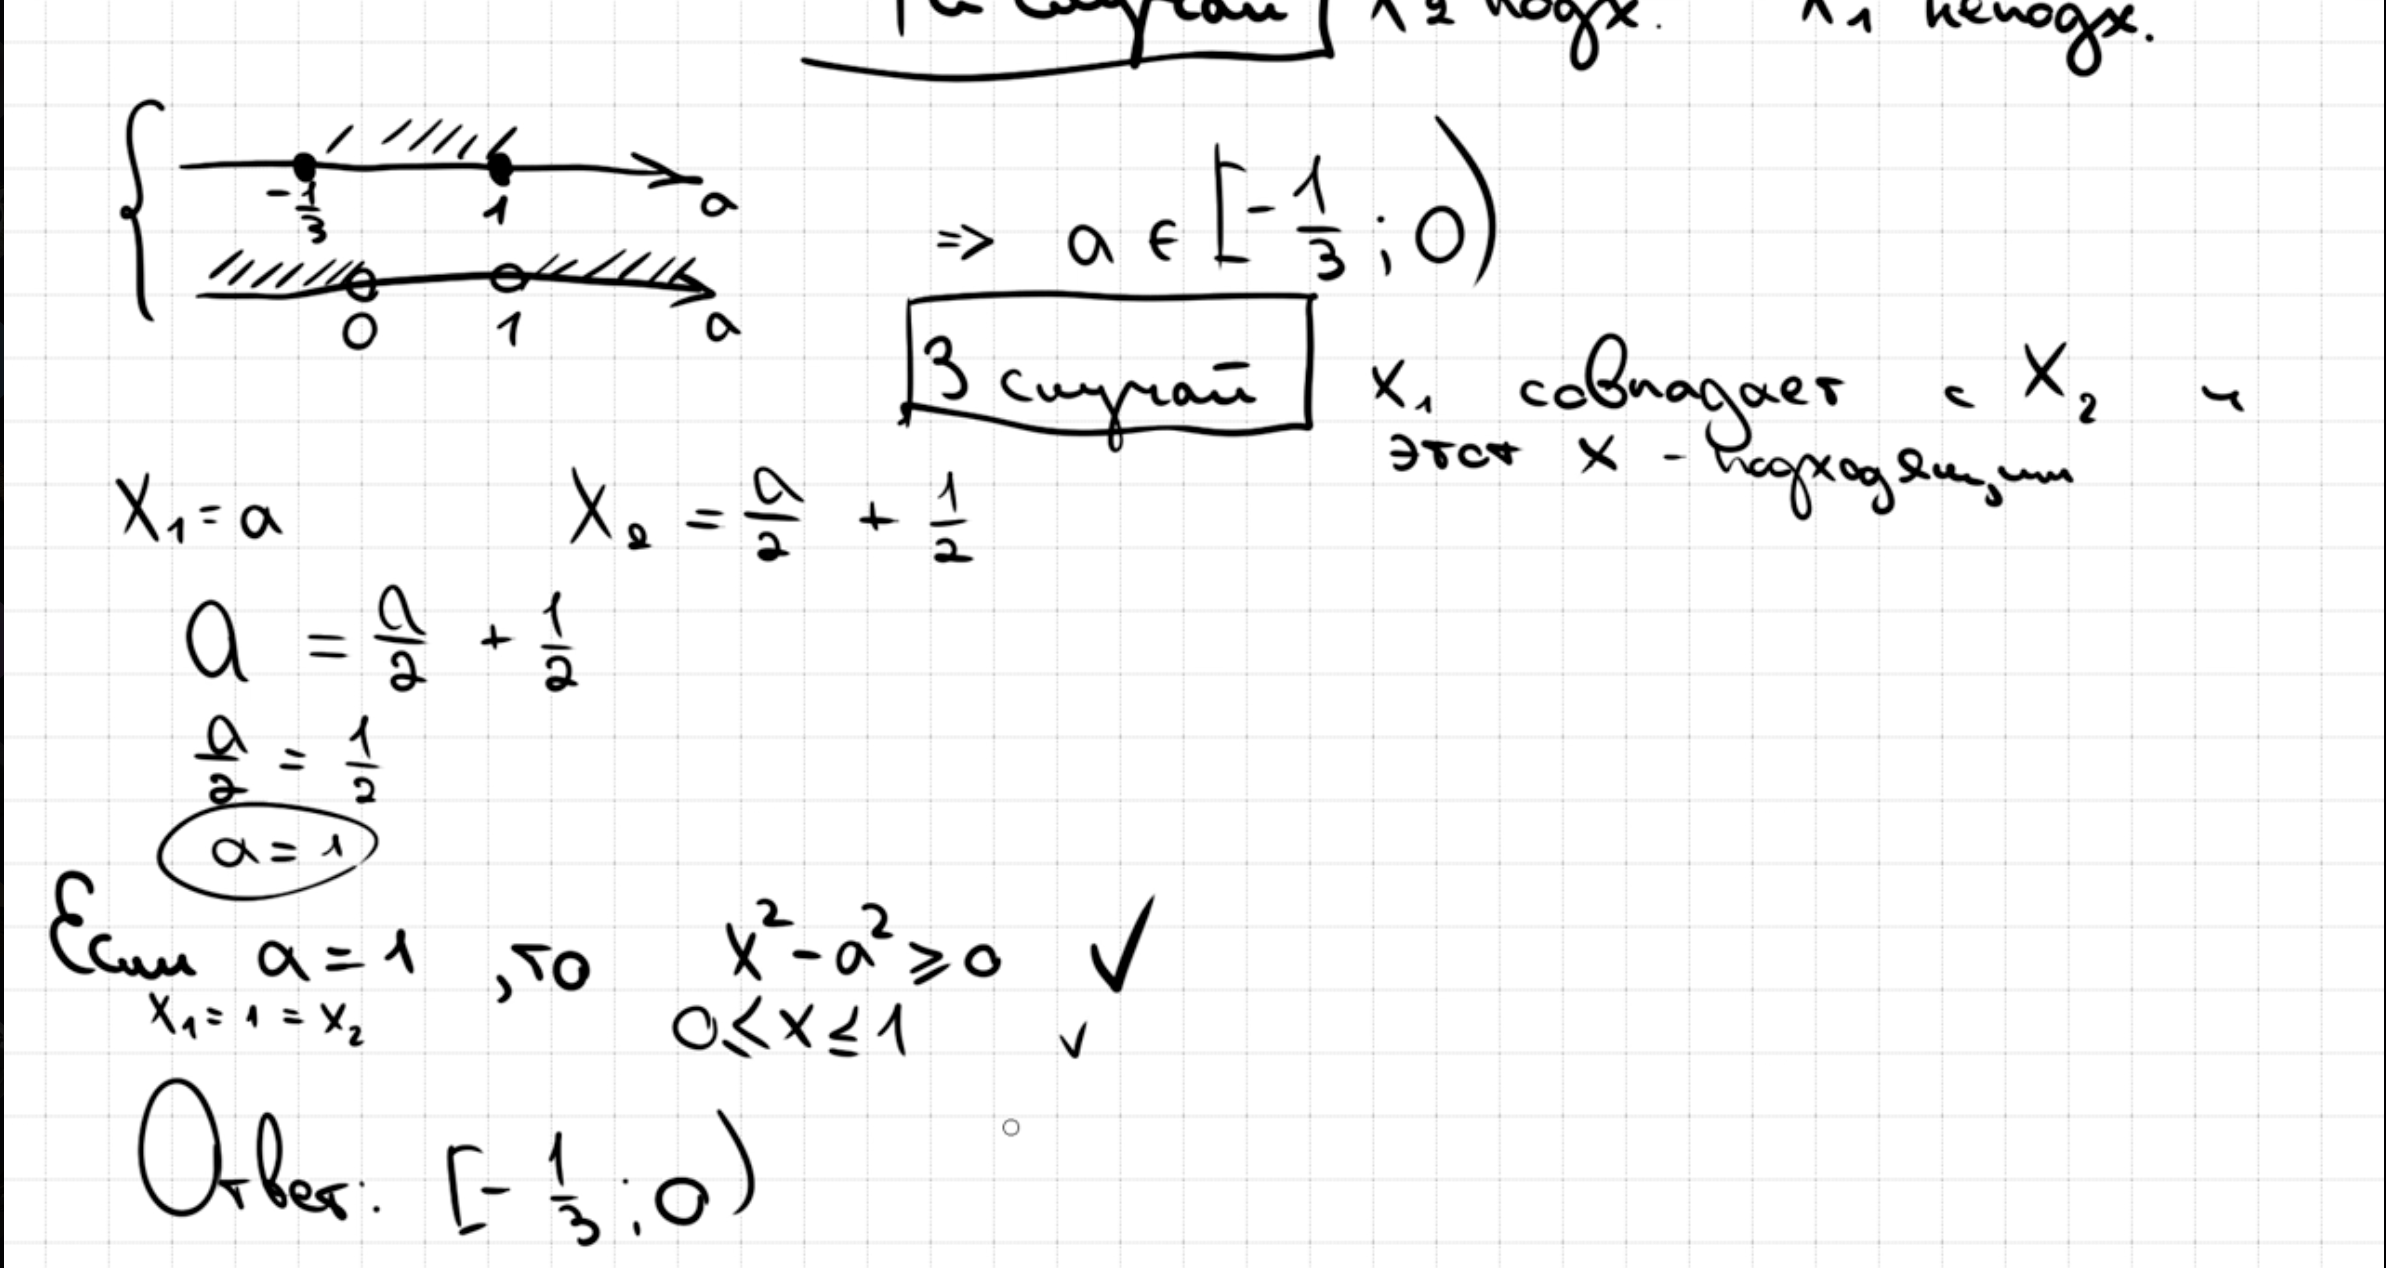 й случай x₂ подх. x₁ неподх.
-1/3 1 a
0 1 a
=> a ∈ [-1/3 ; 0)
3 случай x₁ совпадает с x₂ и
этот x - подходящий
x₁ = a x₂ = a/2 + 1/2
a = a/2 + 1/2
a/2 = 1/2
a = 1
Если a = 1 , то x² - a² ⩾ 0 ✓
x₁ = 1 = x₂ 0 ⩽ x ⩽ 1 ✓
Ответ: [-1/3 ; 0)